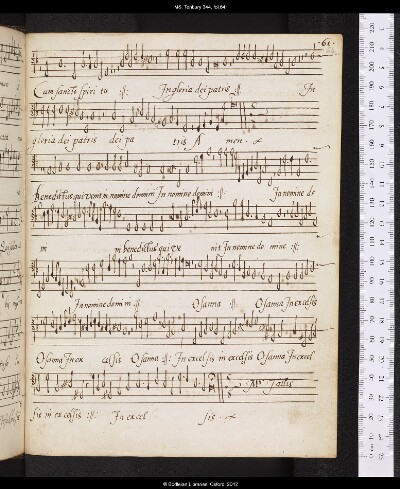 MS. Tenbury 344, fol.64r
61.
Cum sancto spiri tu :||: In gloria dei patris :||: In
gloria dei patris dei pa tris A men
benedictus qui venit in nomine domini In nomine domini :||: In nomine do
m in benedictus qui ve nit In nomine do mine :||:
In nomine domini :||: Osanna :||: Osanna In excelsis
Osanna In ex celsis Osanna :||: In excelsis in excelsis Osanna In excel
sis in excelsis :||: In excel sis
Mr Tallis
© Bodleian Libraries, Oxford, 2012